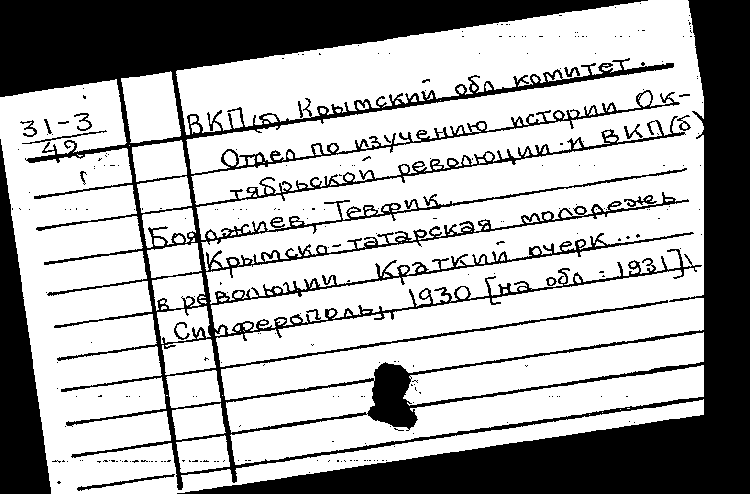 31-3
42
г
ВКП(б). Крымский обл. комитет.
Отдел по изучению истории Ок-
тябрьской революции и ВКП(б)
Бояджиев, Тевфик.
Крымско-татарская молодежь
в революции. Краткий очерк...
[Симферополь], 1930 [на обл: 1931]